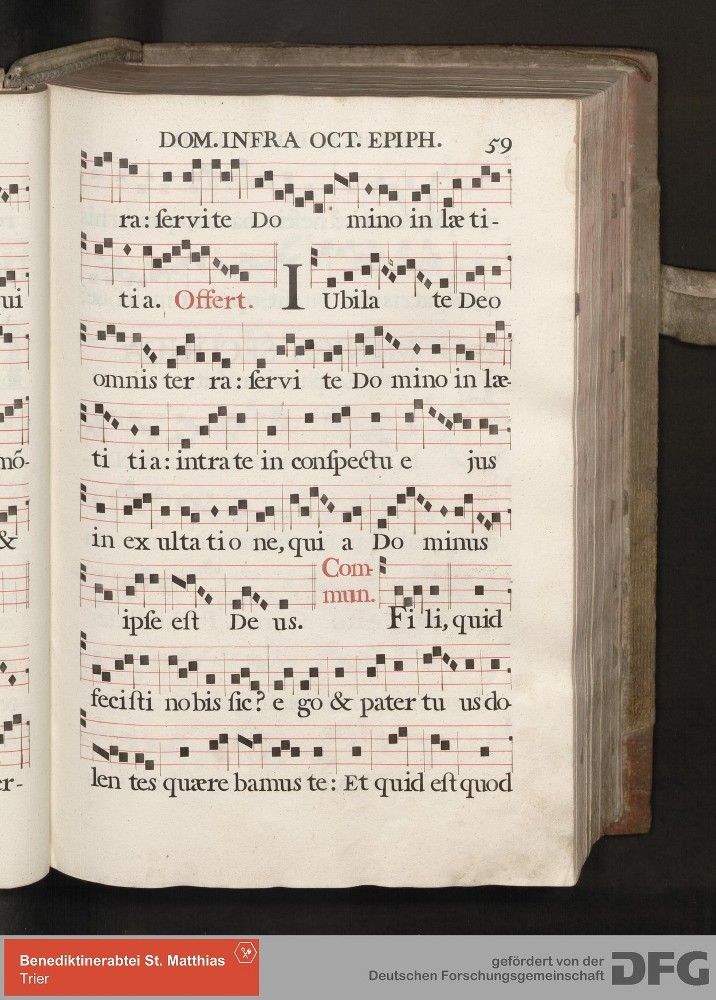 DOM. INFRA OCT. EPIPH. 59
ra: ſervite Do mino in læ ti-
tia. Offert. IUbila te Deo
ui
omnis ter ra: ſervi te Do mino in læ-
ti tia: intra te in conſpectu e jus
mó-
in ex ulta ti o ne, qui a Do minus
&
Com-
mun.
ipſe eſt De us. Fi li, quid
feciſti nobis ſic? e go & pater tu us do-
len tes quære bamus te: Et quid eſt quod
er-
Benediktinerabtei St. Matthias
Trier
gefördert von der
Deutschen Forschungsgemeinschaft DFG